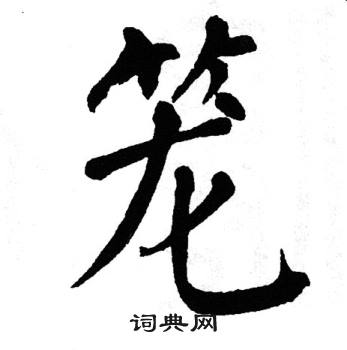 笼
词典网